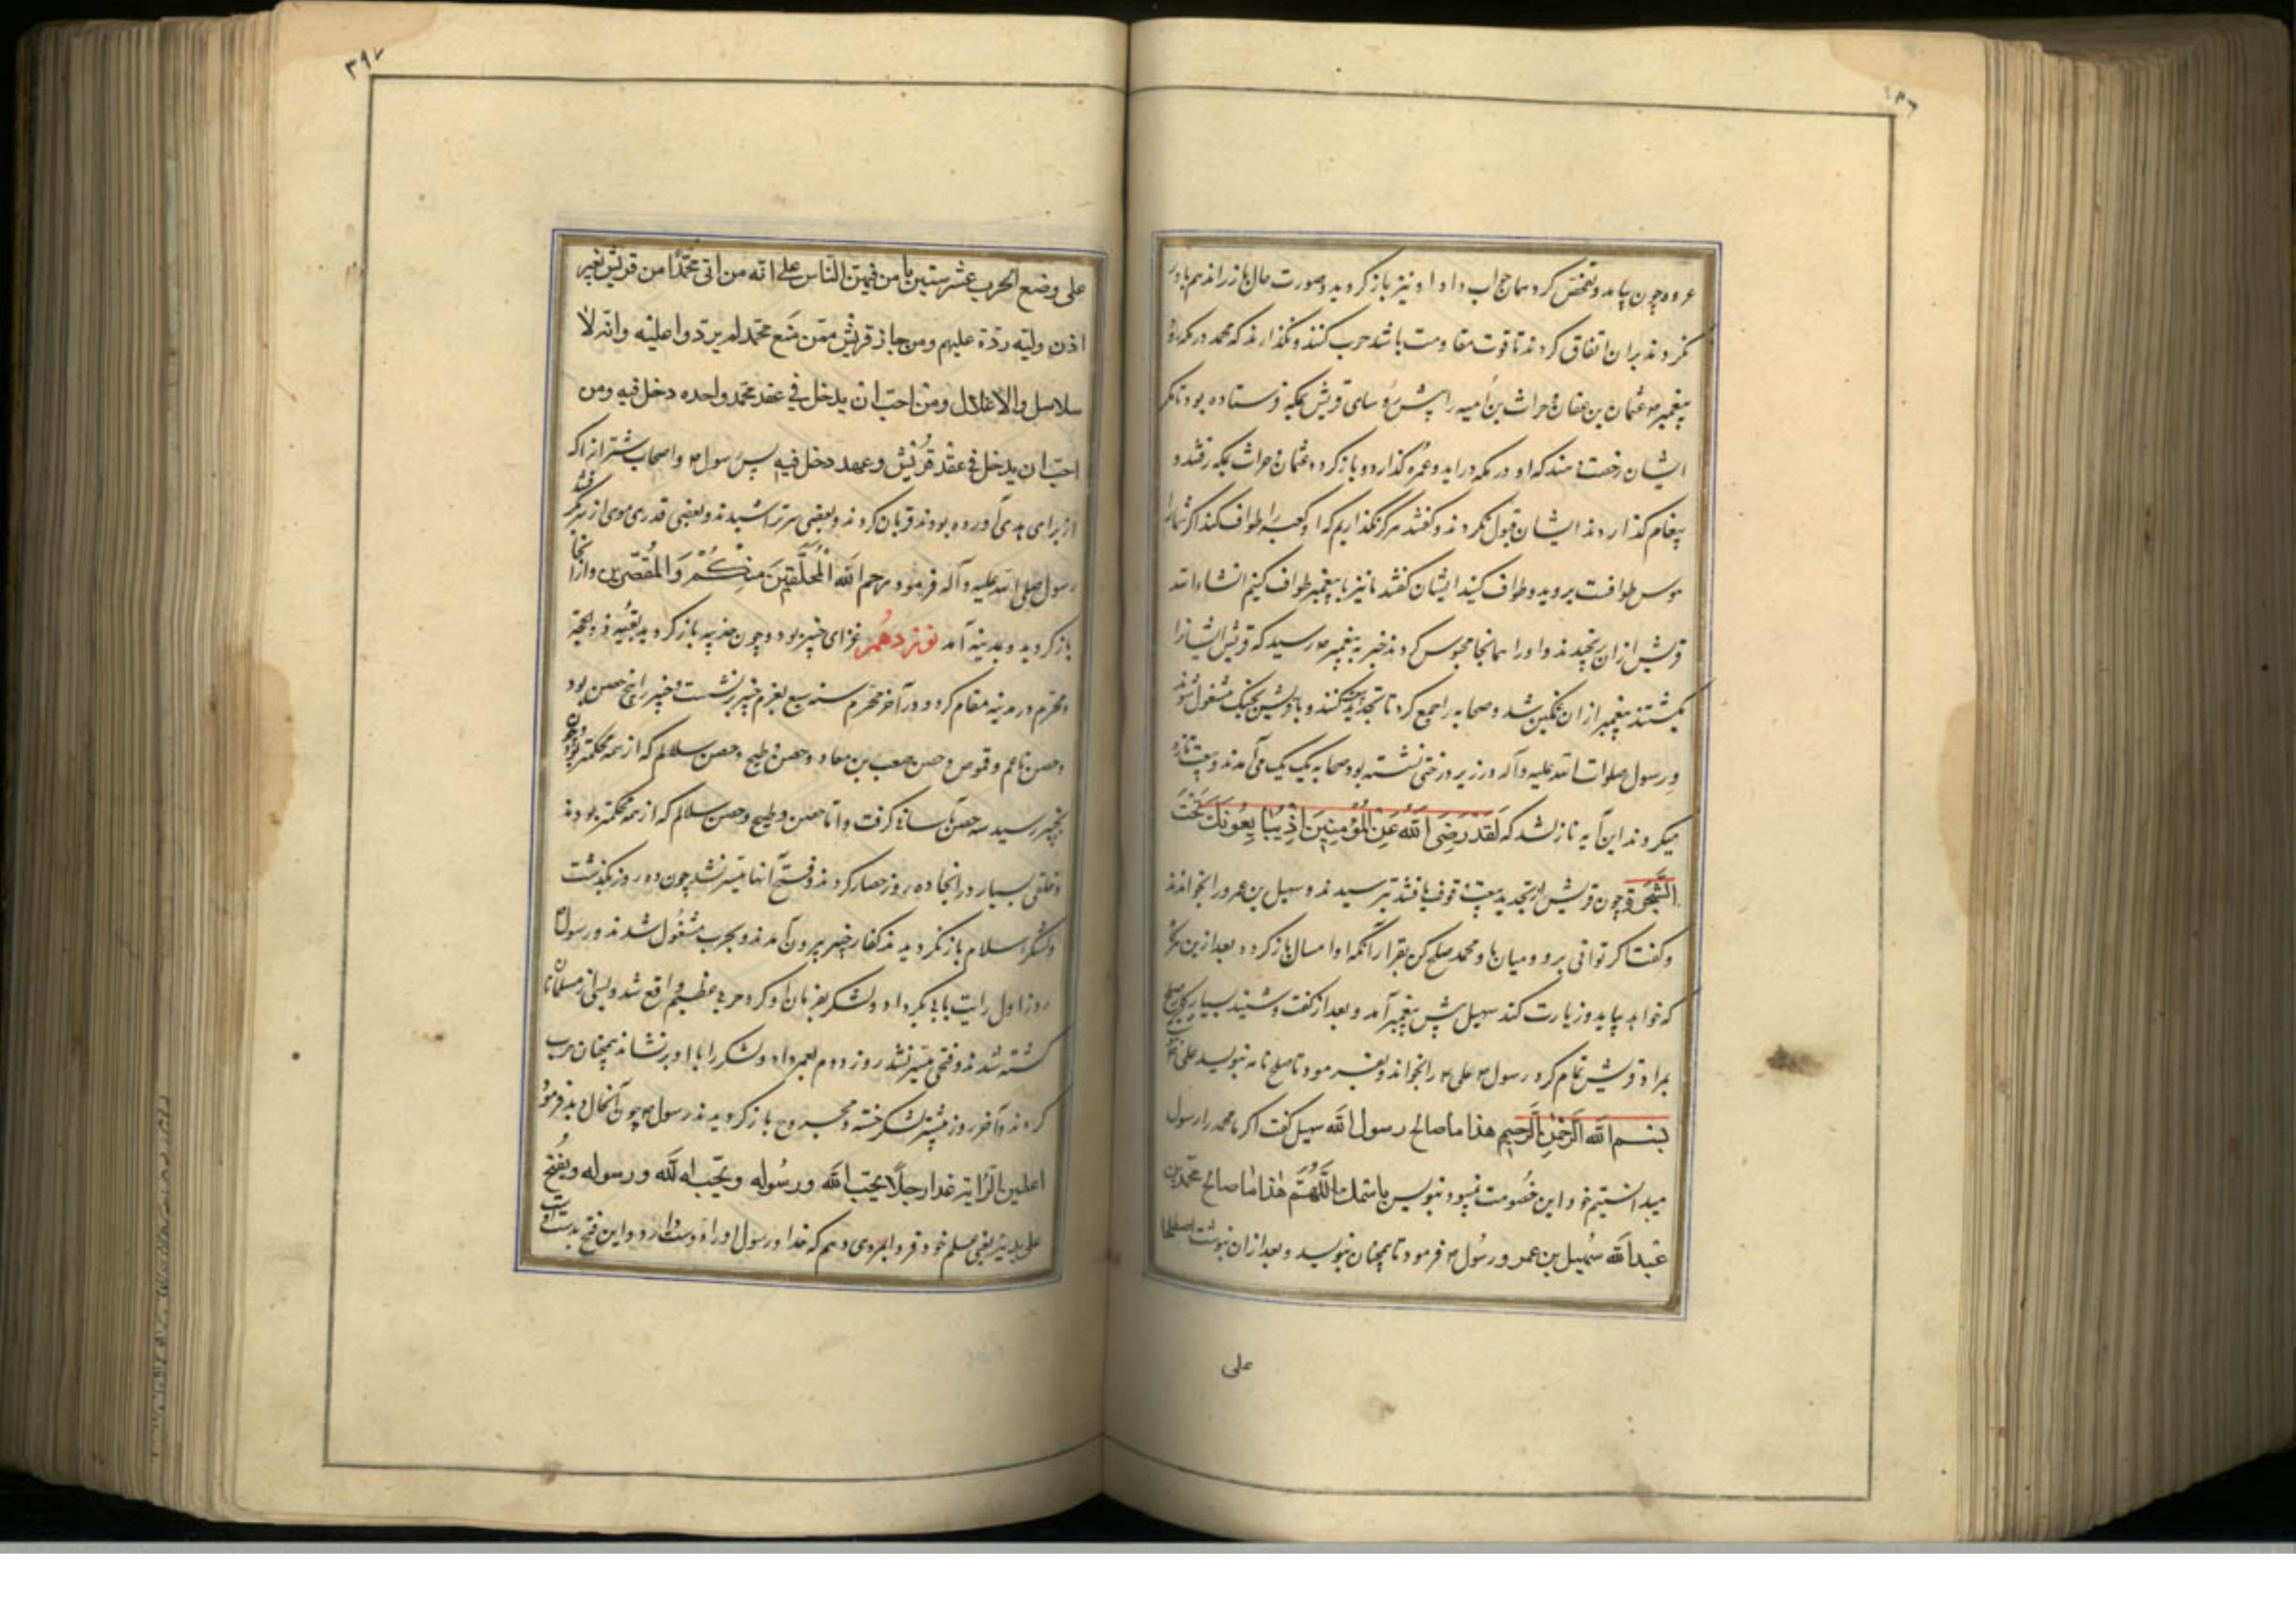 عروه چون بیامد و تفحص کرد همان جواب داد او نیز باز کردید و صورت حال باز راند هم باور
نکردند بران اتفاق کردند تا قوت مقاومت باشد حرب کنند و نگذارند که محمد در مکه رود
پیغمبر م عثمان بن عفان و حراث بن امیه را پیش رؤسای قریش بمکه فرستاده بود تا مکر
ایشان رخصت دهند که او در مکه دراید و عمره گذارد و باز کردد عثمان و حراث بمکه رفتند و
پیغام گذاردند ایشان قبول نکردند و گفتند هرگز نگذاریم که او کعبه را طواف کند اگر شما را
هوس طوافست بروید و طواف کنید ایشان گفتند ما نیز با پیغمبر طواف کنیم انشاءالله
قریش ازان برنجیدند و او را همانجا محبوس کردند خبر به پیغمبر م رسید که قریش ایشانرا
بکشتند پیغمبر ازان غمگین شد و صحابه را جمع کرد تا تجدید بیعت کنند و با قریش بجنک مشغول شوند
و رسول صلوات الله علیه و آله در زیر درختی نشسته بود صحابه یک یک می آمدند و بیعت تازه
میکردند این آیه نازل شد که لَقَدْ رَضِیَ اللّٰهُ عَنِ الْمُؤْمِنِینَ اِذْ یُبَایِعُونَكَ تَحْتَ
الشَّجَرَةِ و چون قریش بر تجدید بیعت وقوف یافتند بترسیدند و سهیل بن عمرو را بخواندند
و گفت اگر توانی برو و میان ما و محمد صلح کن بقرار آنکه او امسال باز کردد بعد ازین هرگه
که خواهد بیاید و زیارت کند سهیل پیش پیغمبر آمد و بعد از گفت و شنید بسیار کار صلح
بمراد قریش تمام کرد رسول م علی م را بخواند و بفرمود تا صلح نامه نبویسد علی
بسم الله الرحمن الرحیم هذا ما صالح رسول الله سهیل گفت اگر ما محمد را رسول
میدانستیم خود این خصومت نبود نبویس باسمك اللّهُمَّ هذا ما صالح محمد بن
عبدالله سُهیل بن عمر و رسول م فرمود تا همچنان نبویسد و بعد ازان نبوشت اصطلحا
علی
۳۹۷
علی وضع الحرب عشر سنین یامن فیهن الناس علی انه من اتی محمّدا من قریش بغیر
اذن ولیه ردّه علیهم و من جاز قریش ممّن مَنع محمّد لم یردّوا علیه وانه لا
سلاسل ولا اغلال ومن احبّ ان یدخل فی عقد محمد واحده دخل فیه ومن
احبّ ان یدخل فی عقد قُریش وعهد دخل فیه پس رسول م و اصحاب شتران را که
از برای هدی آورده بودند قربان کردند و بعضی سر تراشیدند و بعضی قدری موی از سر
رسول صلی الله علیه و آله فرمود یرحم اللّه الْمُحَلِّقِینَ مِنْکُمْ وَالْمُقَصِّرِین و ازانجا
باز کردید و بمدینه آمد نوزدهم غزای خیبر بود و چون حدیبیه باز کردید بقیه ذو الحجه
و محرم در مدینه مقام کرد و در آخر محرم سنه سبع بعزم خیبر برنشست و خیبر را پنج حصن بود
و حصن ناعم و قموص و حصن صعب بن معاد و حصن وطیح و حصن سلالم که از همه محکمتر بود
بخیبر رسید سه حصن بآسانی گرفت و اما حصن وطیح و حصن سلالم که از همه محکمتر بودند
و خلقی بسیار در انجا ده روز حصار کردند و فتح آنها میسر نشد چون ده روز بگذشت
و لشکر اسلام باز نکردیدند کفار خیبر بیرون آمدند و بحرب مشغُول شدند و رسول م
روز اول رایت بابی بکر داد و لشکر بفرمان او کرد حربی عظیم واقع شد و بسی از مسلمانان
کشته شدند و فتحی میسر نشد روز دوم بعمر داد و لشکر را با او برنشاند همچنان حرب
کردند و آخر روز بیشتر لشکر خسته و مجروح باز کردیدند رسول م چون آنحال دید فرمود
اعطین الرّایة غدا رجلا یحبّ اللّه ورسُوله ویحبّه اللّه ورسوله ویفتح
علی یدیه یعنی علم خود فردا بمردی دهم که خدا و رسول او را دوست دارد و این فتح بدست او